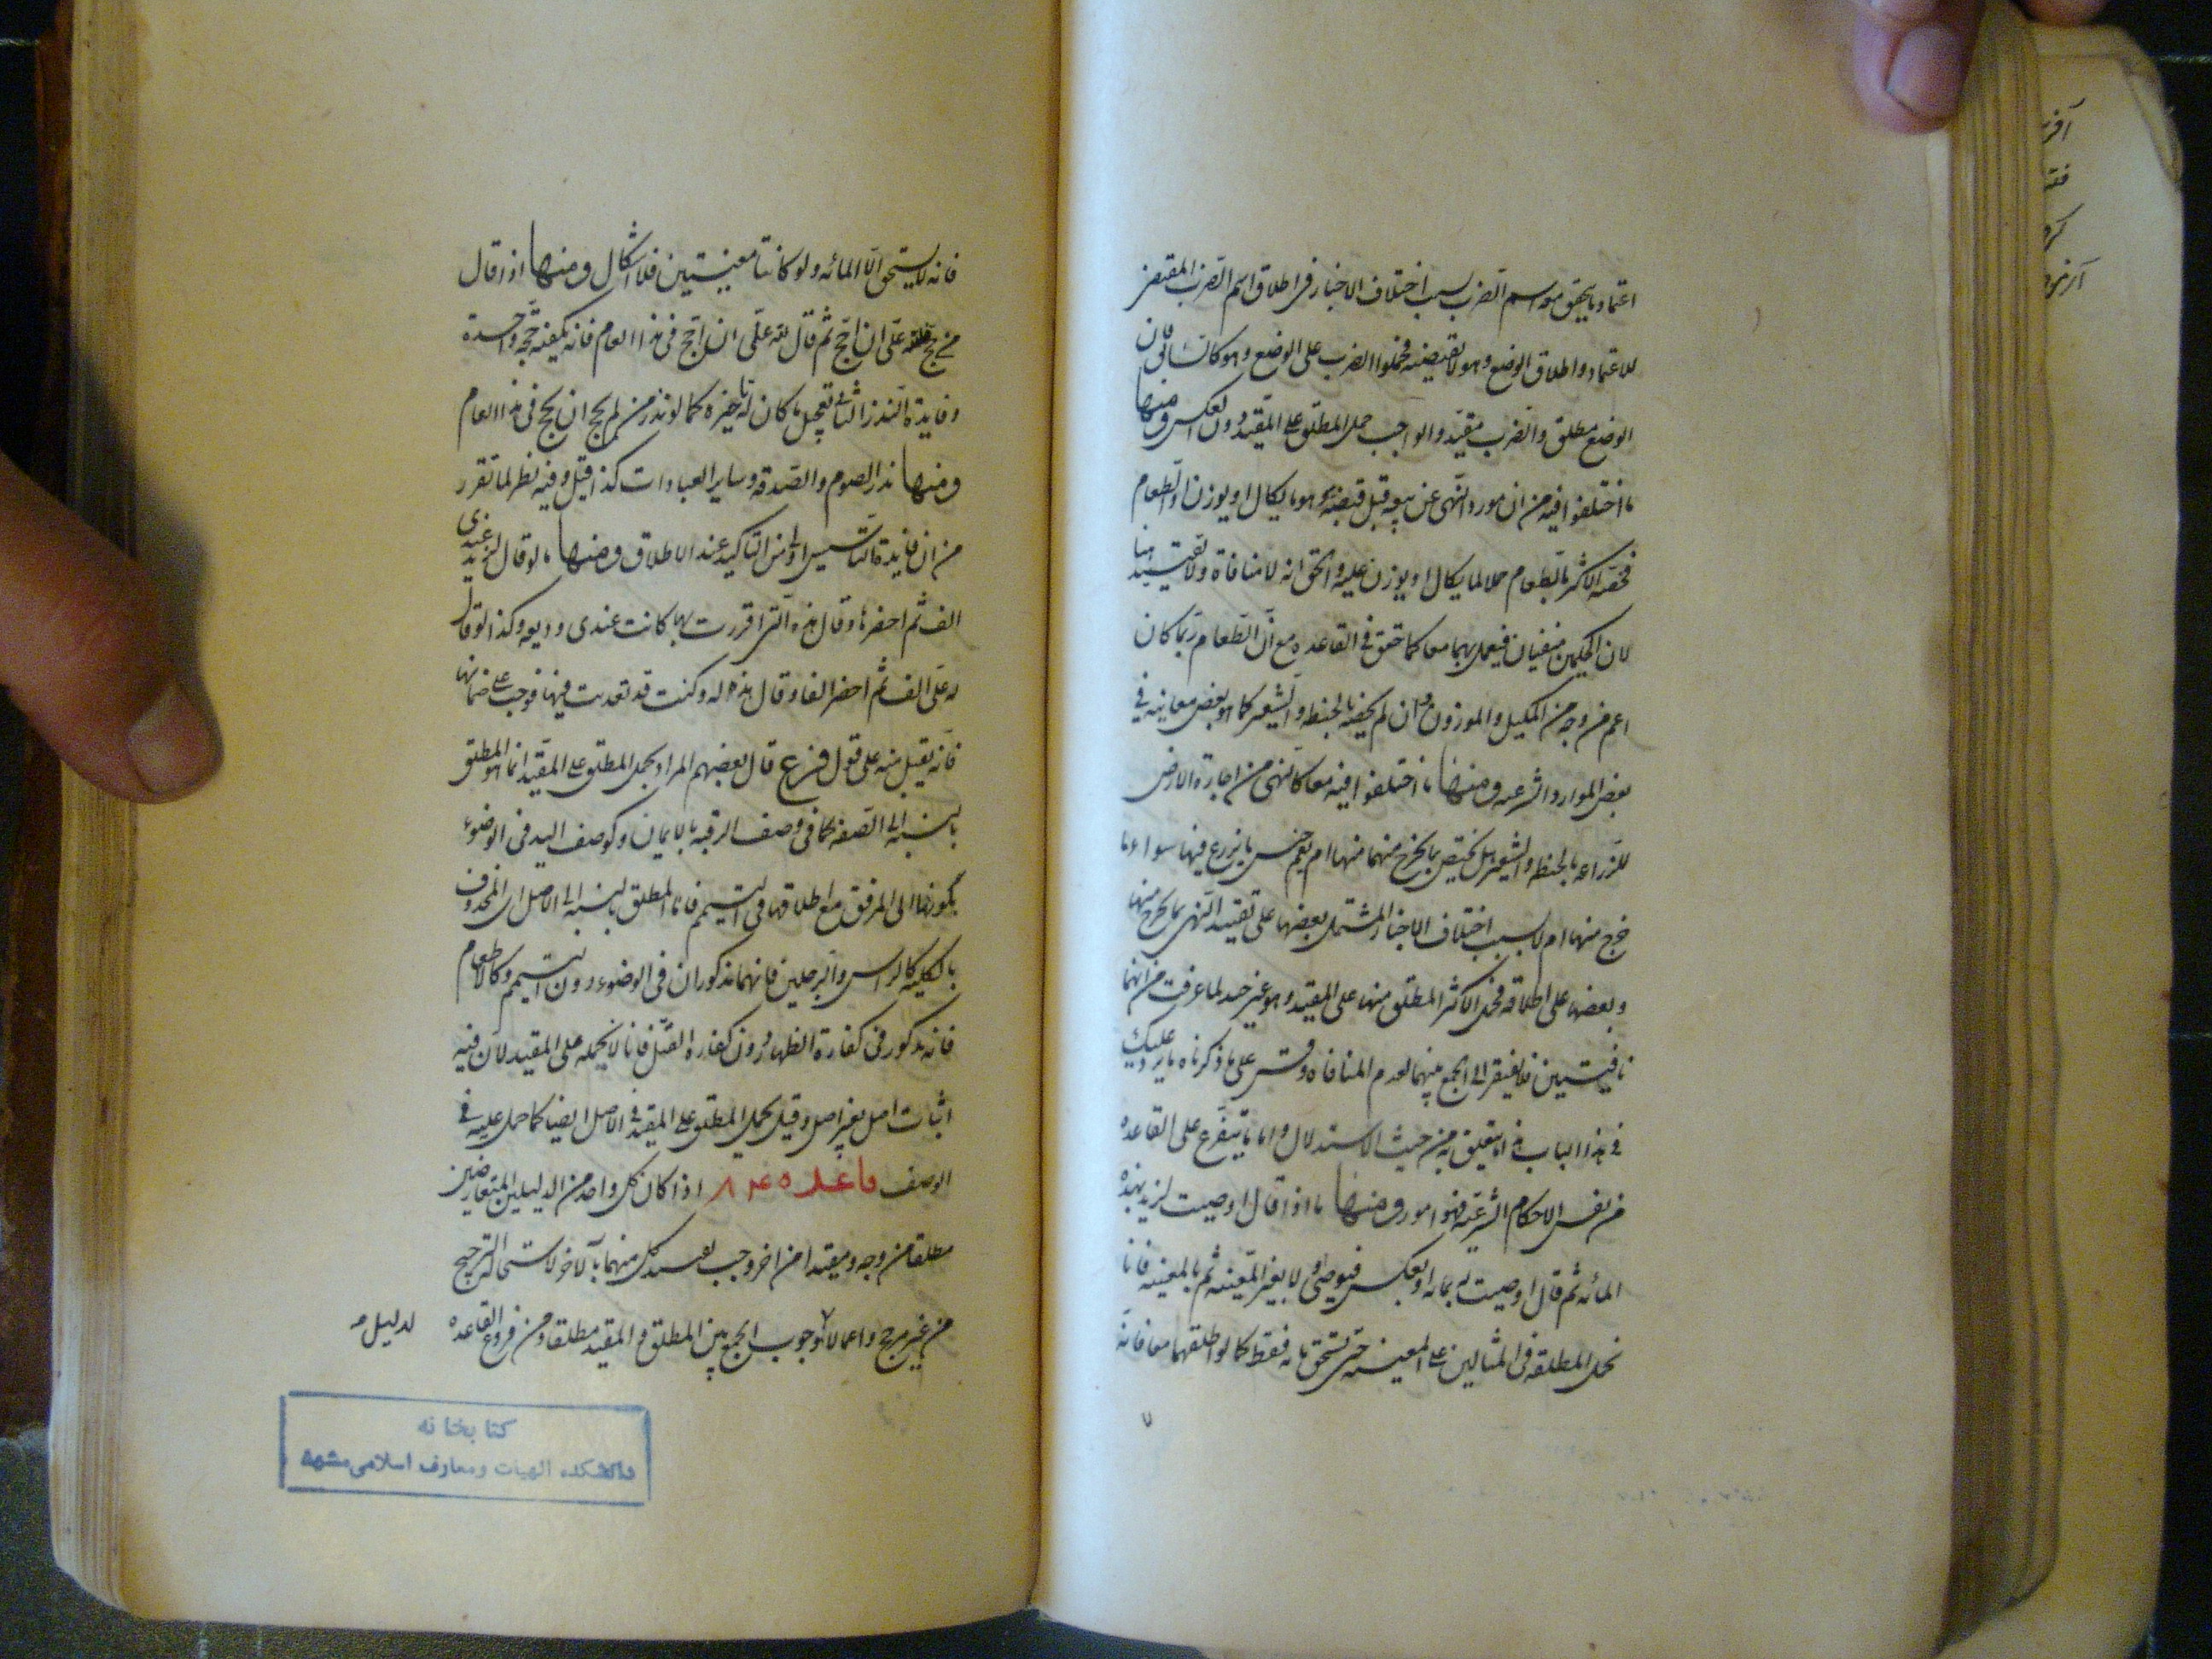 اعتماد ما يحقق معه اسم الضرب بسبب اختلاف الاخبار في اطلاق اسم الضرب المقتضى
للاعتماد واطلاق الوضع وهو لا يقتضيه فحملوا الضرب على الوضع وهو كالتالى فان
الوضع مطلق والضرب مقيد والواجب حمل المطلق على المقيد دون العكس ومنها
ما اختلفوا فيه من ان مورد النهى عن بيعه قبل قبضه هو ما يكال او يوزن او الطعام
فخصه الاكثر بالطعام حملا لما يكال او يوزن عليه والحق انه لا منافاة ولا تقييد هنا
لان الحكمين منفيان فيعمل بهما معا كما حقق في القاعده مع ان الطعام ربما كان
اعم من وجه من المكيل والموزون وان لم نخصه بالحنطه والشعير كما هو بعض معانيه في
بعض الموارد الشرعيه ومنها ما اختلفوا فيه معا كالنهى من اجارة الارض
للزراعه بالحنطه والشعير هل يختص بما يخرج منهما منها ام يعم جنس ما يزرع فيها سواء ما
خرج منها ام لا بسبب اختلاف الاخبار المشتمل بعضها على تقييد النهى بما يخرج منها
وبعضها على اطلاقه فحمل الاكثر المطلق منها على المقيد وهو غير جيد لما عرفت من انهما
نافيتين فلا يفتقر الى الجمع بينهما لعدم المنافاه وقس على ما ذكرناه ما يرد عليك
في هذا الباب هذا ما يتعلق به من حيث الاستدلال واما ما يتفرع على القاعده
من نفس الاحكام الشرعيه فهو امور ومنها ما اذا قال اوصيت لزيد بهذه
المائه ثم قال اوصيت له بمائه او بالعكس فيوصى اولا بغير المعينه ثم بالمعينه فانا
نحمل المطلقه فى المثالين على المعينه حتى يستحق مائه فقط كما لو اطلقهما معا فانه
فانه لا يستحق الا المائه ولو كانتا معينتين فلا اشكال ومنها اذا قال
لله على ان احج ثم قال لله على ان احج فى هذا العام فانه يكفيه حجة واحدة
وفايدة النذر الثانى تعجيل ما كان له تاخيره كما لو نذر من لم يحج ان يحج فى هذا العام
ومنها نذر الصوم والصدقه وساير العبادات كذا قيل وفيه نظر لما تقرر
من ان فايدة التاسيس اولى من التاكيد عند الاطلاق ومنها ما لو قال لزيد عندى
الف ثم احضرها وقال هذه التى اقررت بها كانت عندى وديعه وكذا لو قال
له على الف ثم احضر الفا وقال هذه له وكنت قد تعديت فيها فوجب على ضمانها
فانه يقبل منه على قول فرع قال بعضهم المراد بحمل المطلق على المقيد انما هو المطلق
بالنسبه الى الصفه كما فى وصف الرقبه بالايمان وكوصف اليد فى الوضوء
بكونها الى المرفق مع اطلاقها فى التيمم فاما المطلق بالنسبه الى الاصل اى المحذوف
بالكليه كالراس والرجلين فانهما مذكوران فى الوضوء دون التيمم وكالاطعام
فانه مذكور فى كفارة الظهار دون كفاره القتل فانا لا نحمله على المقيد لان فيه
اثبات اصل بغير اصل وقيل يحمل المطلق على المقيد في الاصل ايضا كما حمل عليه في
الوصف قاعده اذا كان كل واحد من الدليلين المتعارضين
مطلقا من وجه ومقيدا من اخر وجب تقييد كل منهما بالآخر لاستحالة الترجيح
من غير مرجح واعمالا لوجوب الجمع بين المطلق والمقيد مطلقا ومن فروع القاعده
لدليل مـ
كتابخانه
دانشكده الهيات ومعارف اسلامى مشهد